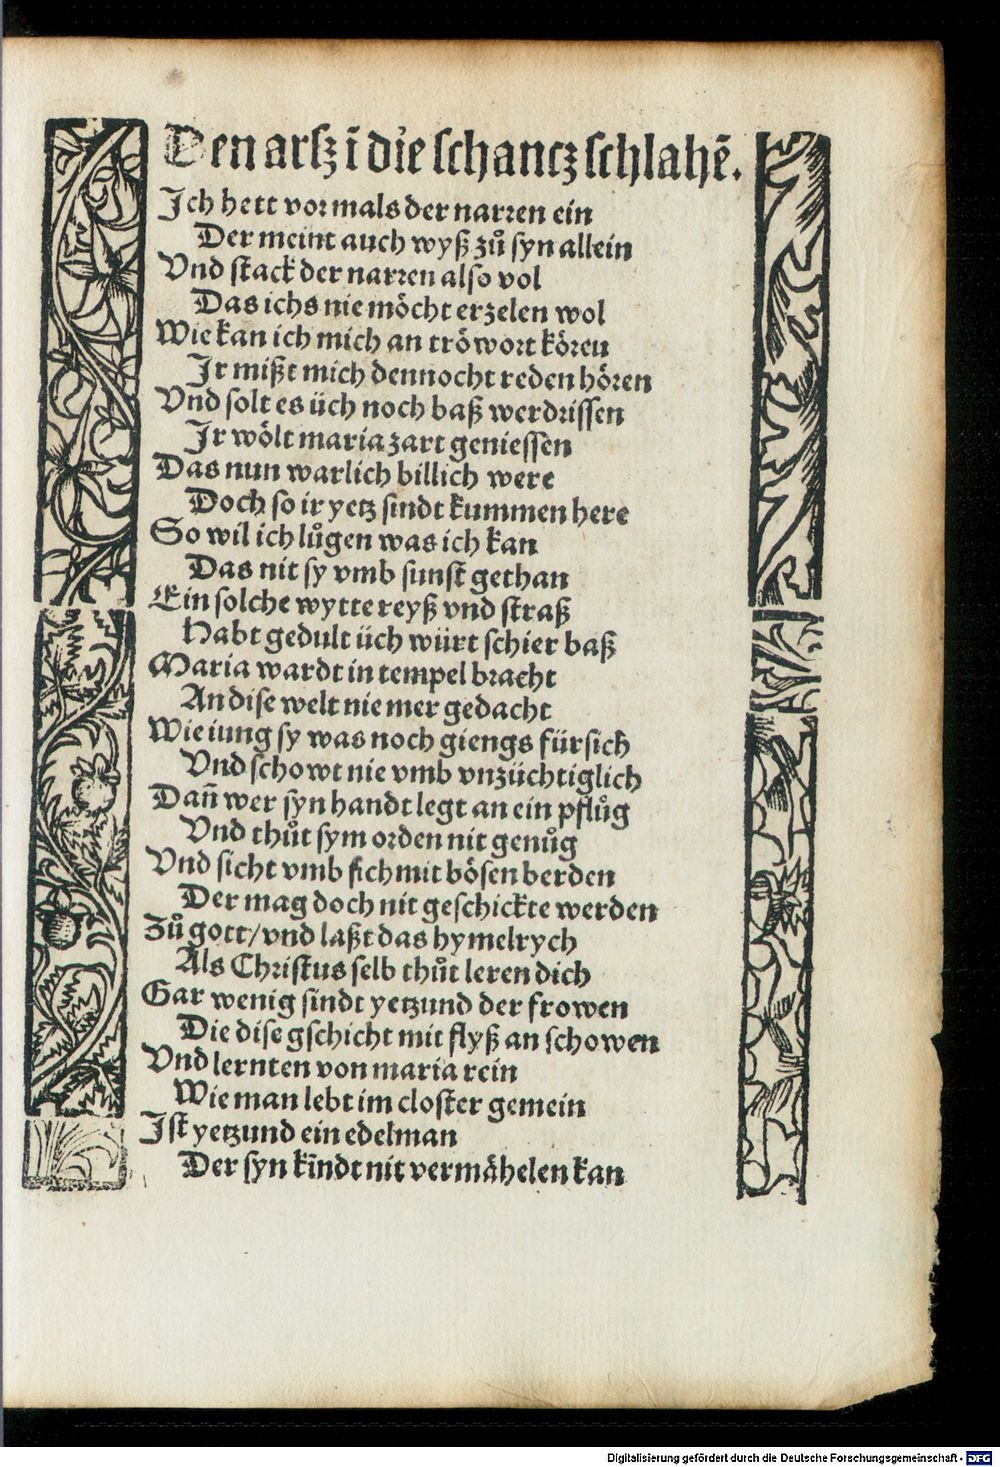 Den arſz ī die ſchantz ſchlahē.
Ich hett vormals der narren ein
Der meint auch wyß zů ſyn allein
Vnd ſtack der narren alſo vol
Das ichs nie möcht erzelen wol
Wie kan ich mich an tröwort kören
Ir mißt mich dennocht reden hören
Vnd ſolt es üch noch baß werdriſſen
Ir wölt maria zart genieſſen
Das nun warlich billich were
Doch ſo ir yetz ſindt kummen here
So wil ich lůgen was ich kan
Das nit ſy vmb ſunſt gethan
Ein ſolche wytte reyß vnd ſtraß
Habt gedult üch würt ſchier baß
Maria wardt in tempel bracht
An diſe welt nie mer gedacht
Wie iung ſy was noch giengs fürſich
Vnd ſchowt nie vmb vnzüchtiglich
Dañ wer ſyn handt legt an ein pflůg
Vnd thůt ſym orden nit genůg
Vnd ſicht vmb ſich mit böſen berden
Der mag doch nit geſchickte werden
Zů gott/vnd laßt das hymelrych
Als Chriſtus ſelb thůt leren dich
Gar wenig ſindt yetzund der frowen
Die diſe gſchicht mit flyß an ſchowen
Vnd lernten von maria rein
Wie man lebt im cloſter gemein
Iſt yetzund ein edelman
Der ſyn kindt nit vermähelen kan
Digitalisierung gefördert durch die Deutsche Forschungsgemeinschaft - DFG